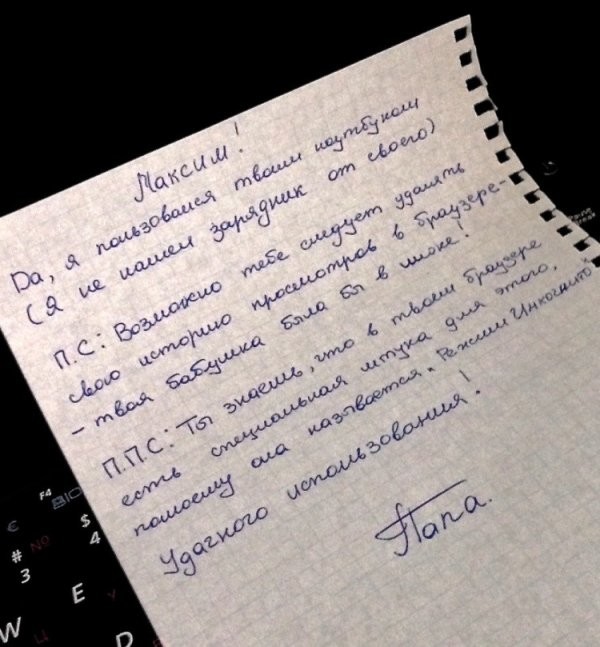 Максим!
Да, я пользовался твоим ноутбуком
(Я не нашел зарядник от своего)
П.С: Возможно тебе следует удалять
свою историю просмотров в браузере-
- твоя бабушка была бы в шоке!
П.П.С: Ты знаешь, что в твоем браузере
есть специальная штука для этого,
помоему она называется "Режим Инкогнито"
Удачного использования!
Папа.
F4
BIO
€
$
4
#
3
W
E
D